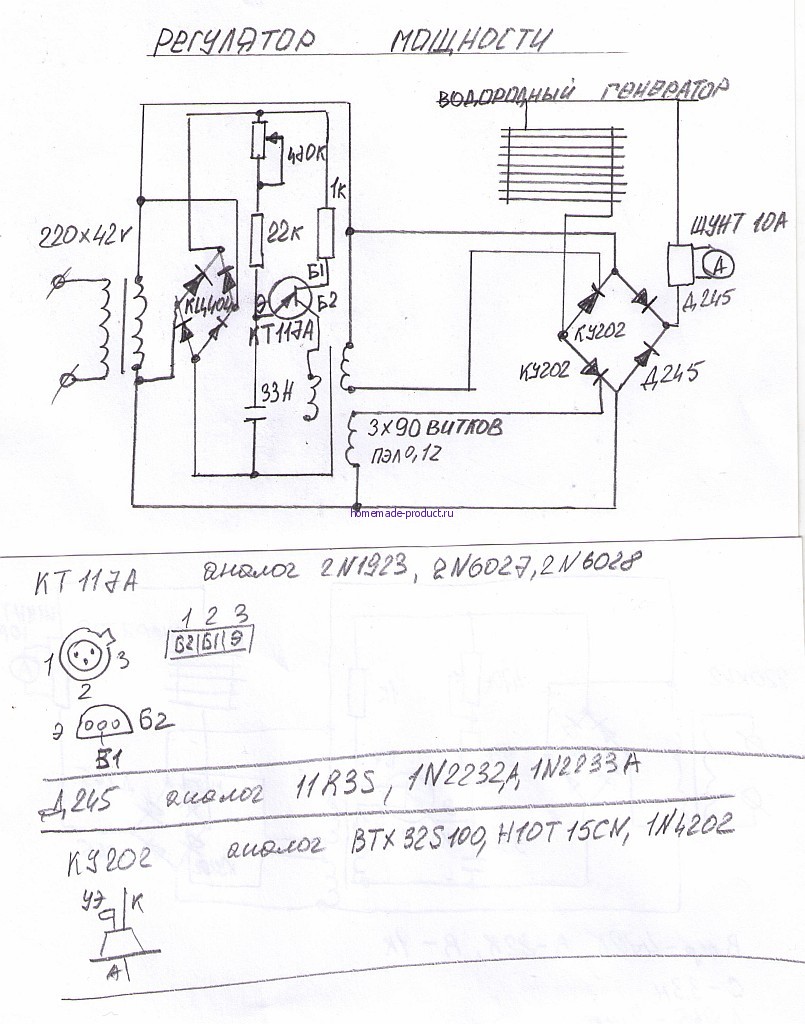 РЕГУЛЯТОР МОЩНОСТИ
ВОДОРОДНЫЙ ГЕНЕРАТОР
470К
1К
220х42v
22К
ШУНТ 10А
Б1
А
КЦ404
Э
Б2
Д245
КТ117А
КУ202
33Н
КУ202
Д245
3х90 ВИТКОВ
ПЭЛ 0,12
homemade-product.ru
КТ117А аналог 2N1923, 2N6027, 2N6028
1 2 3
Б2 Б1 Э
1 3
2
Э Б2
Б1
Д245 аналог 11R3S, 1N2232A, 1N2233A
КУ202 аналог BTX32S100, H10T15CN, 1N4202
УЭ К
А